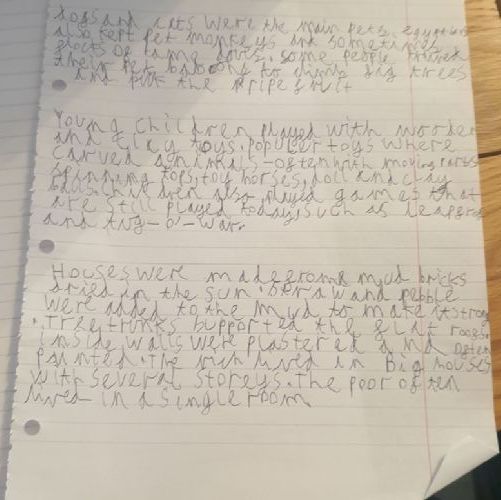 Dogs and cats were the main pets. Egyptians
also kept pet monkeys and sometimes
flocks of tame doves. some people trained
their pet baboons to climb fig trees
and pick the ripe fruit
Young children played with wooden
and clay toys. populer toys where
carved animals-often with moving parts
spinning tops, toy horses, doll and clay
balls. children also played games that
are still played today, such as leapfrog
and tug-o'-war.
Houses were made from mud bricks
dried in the sun. straw and pebble
were added to the mud to make it strong
. Tree trunks supported the flat roofs.
inside walls were plastered and often
painted. The rich lived in big houses
with several storeys. The poor often
lived in a single room.